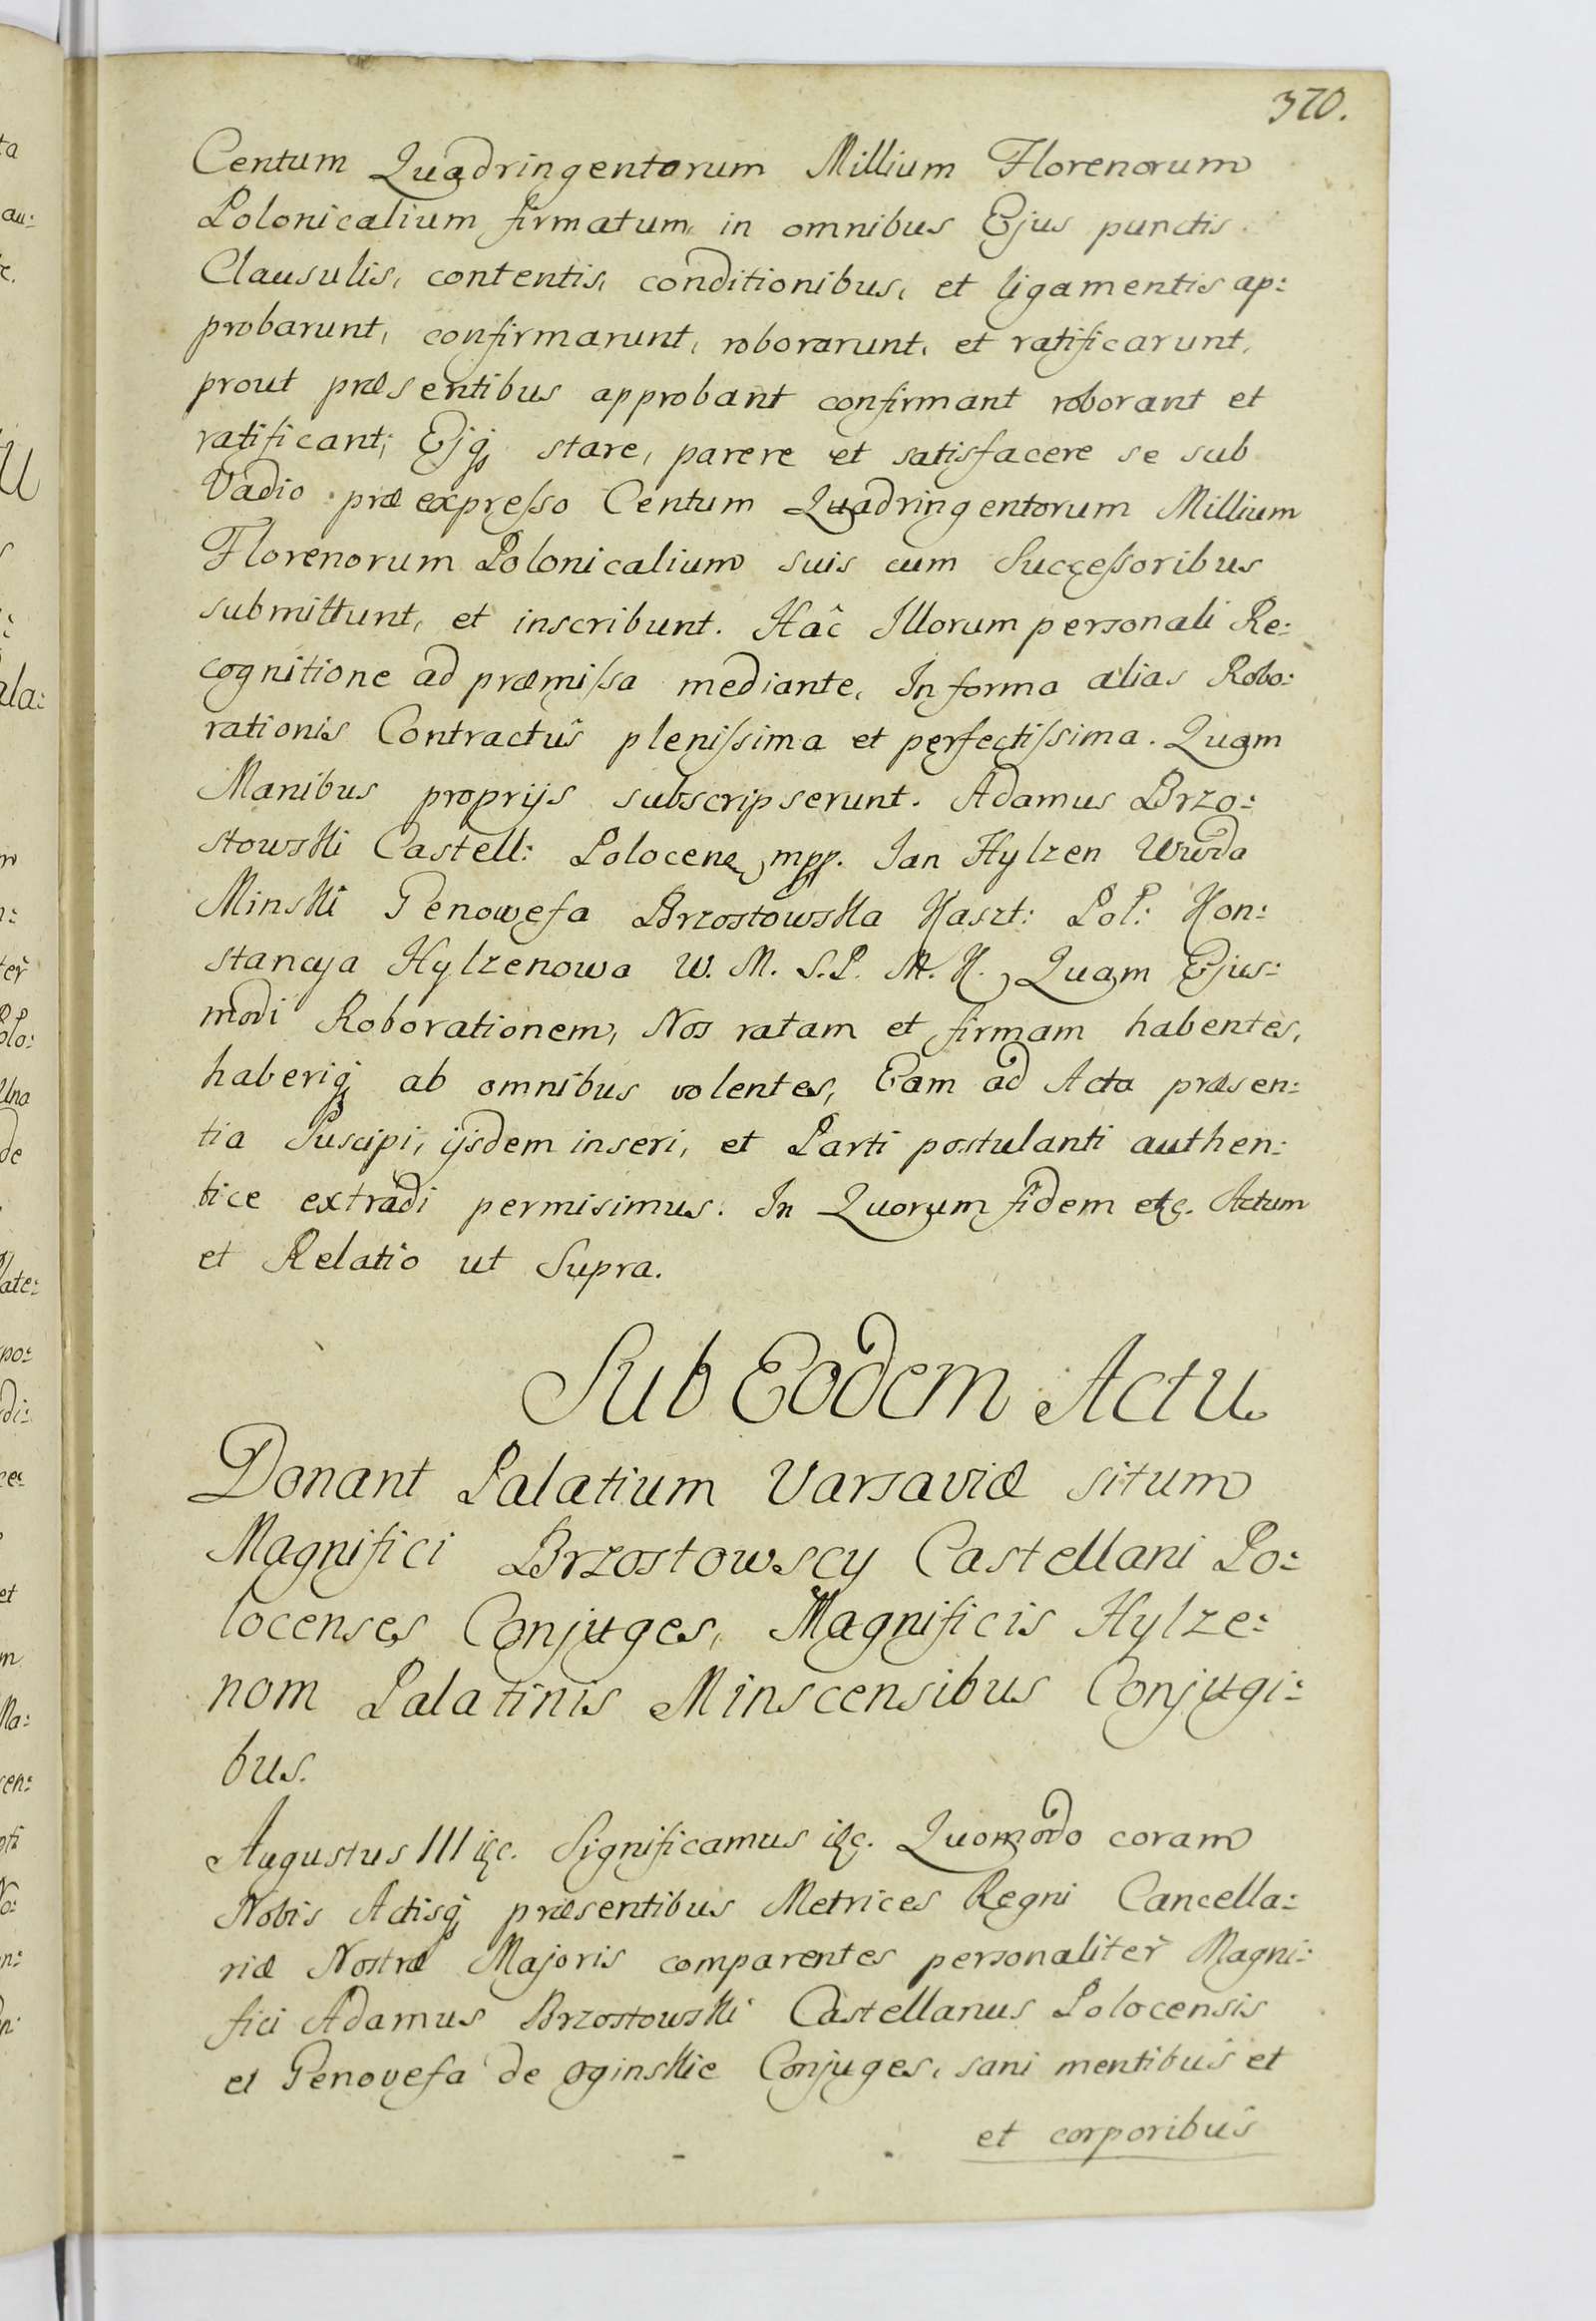 370.
Centum Quadringentorum Millium Florenorum
Polonicalium firmatum, in omnibus Ejus punctis
Clausulis, contentis, conditionibus, et ligamentis ap:
probarunt, confirmarunt, roborarunt, et ratificarunt,
prout præsentibus approbant confirmant roborant et
ratificant; Ejq; stare, parere et satisfacere se sub
Vadio præexpresso Centum Quadringentorum Millium
Florenorum Polonicalium suis cum Successoribus
submittunt, et inscribunt. Hac̑ Illorum personali Re:
cognitione ad præmissa mediante, In forma alias Robo:
rationis Contractûs plenissima et perfectissima. Quam
Manibus proprijs subscripserunt. Adamus Brzo:
stowski Castell: Polocen mpp. Jan Hylzen Wwda
Minski Genowefa Brzostowska Kaszt: Pol: Kon:
stancya Hylzenowa W. M. S. P. M. K. Quam Ejus:
modi Roborationem, Nos ratam et firmam habentes,
haberiq; ab omnibus volentes, Eam ad Acta præsen:
tia Suscipi, ijsdem inseri, et Parti postulanti authen:
tice extradi permisimus. In Quorum fidem etc. Actum
et Relatio ut Supra.
Sub Eodem Actu
Donant Palatium Varsaviæ situm
Magnifici Brzostowscy Castellani Po:
locenses Conjuges, Magnificis Hylze:
nom Palatinis Minscensibus Conjugi:
bus.
Augustus III etc. Significamus etc. Quomodo coram
Nobis Actisq; præsentibus Metrices Regni Cancella:
riæ Nostræ Majoris comparentes personaliter Magni:
fici Adamus Brzostowski Castellanus Polocensis
et Genovefa de Oginskie Conjuges, sani mentibus et
et corporibus